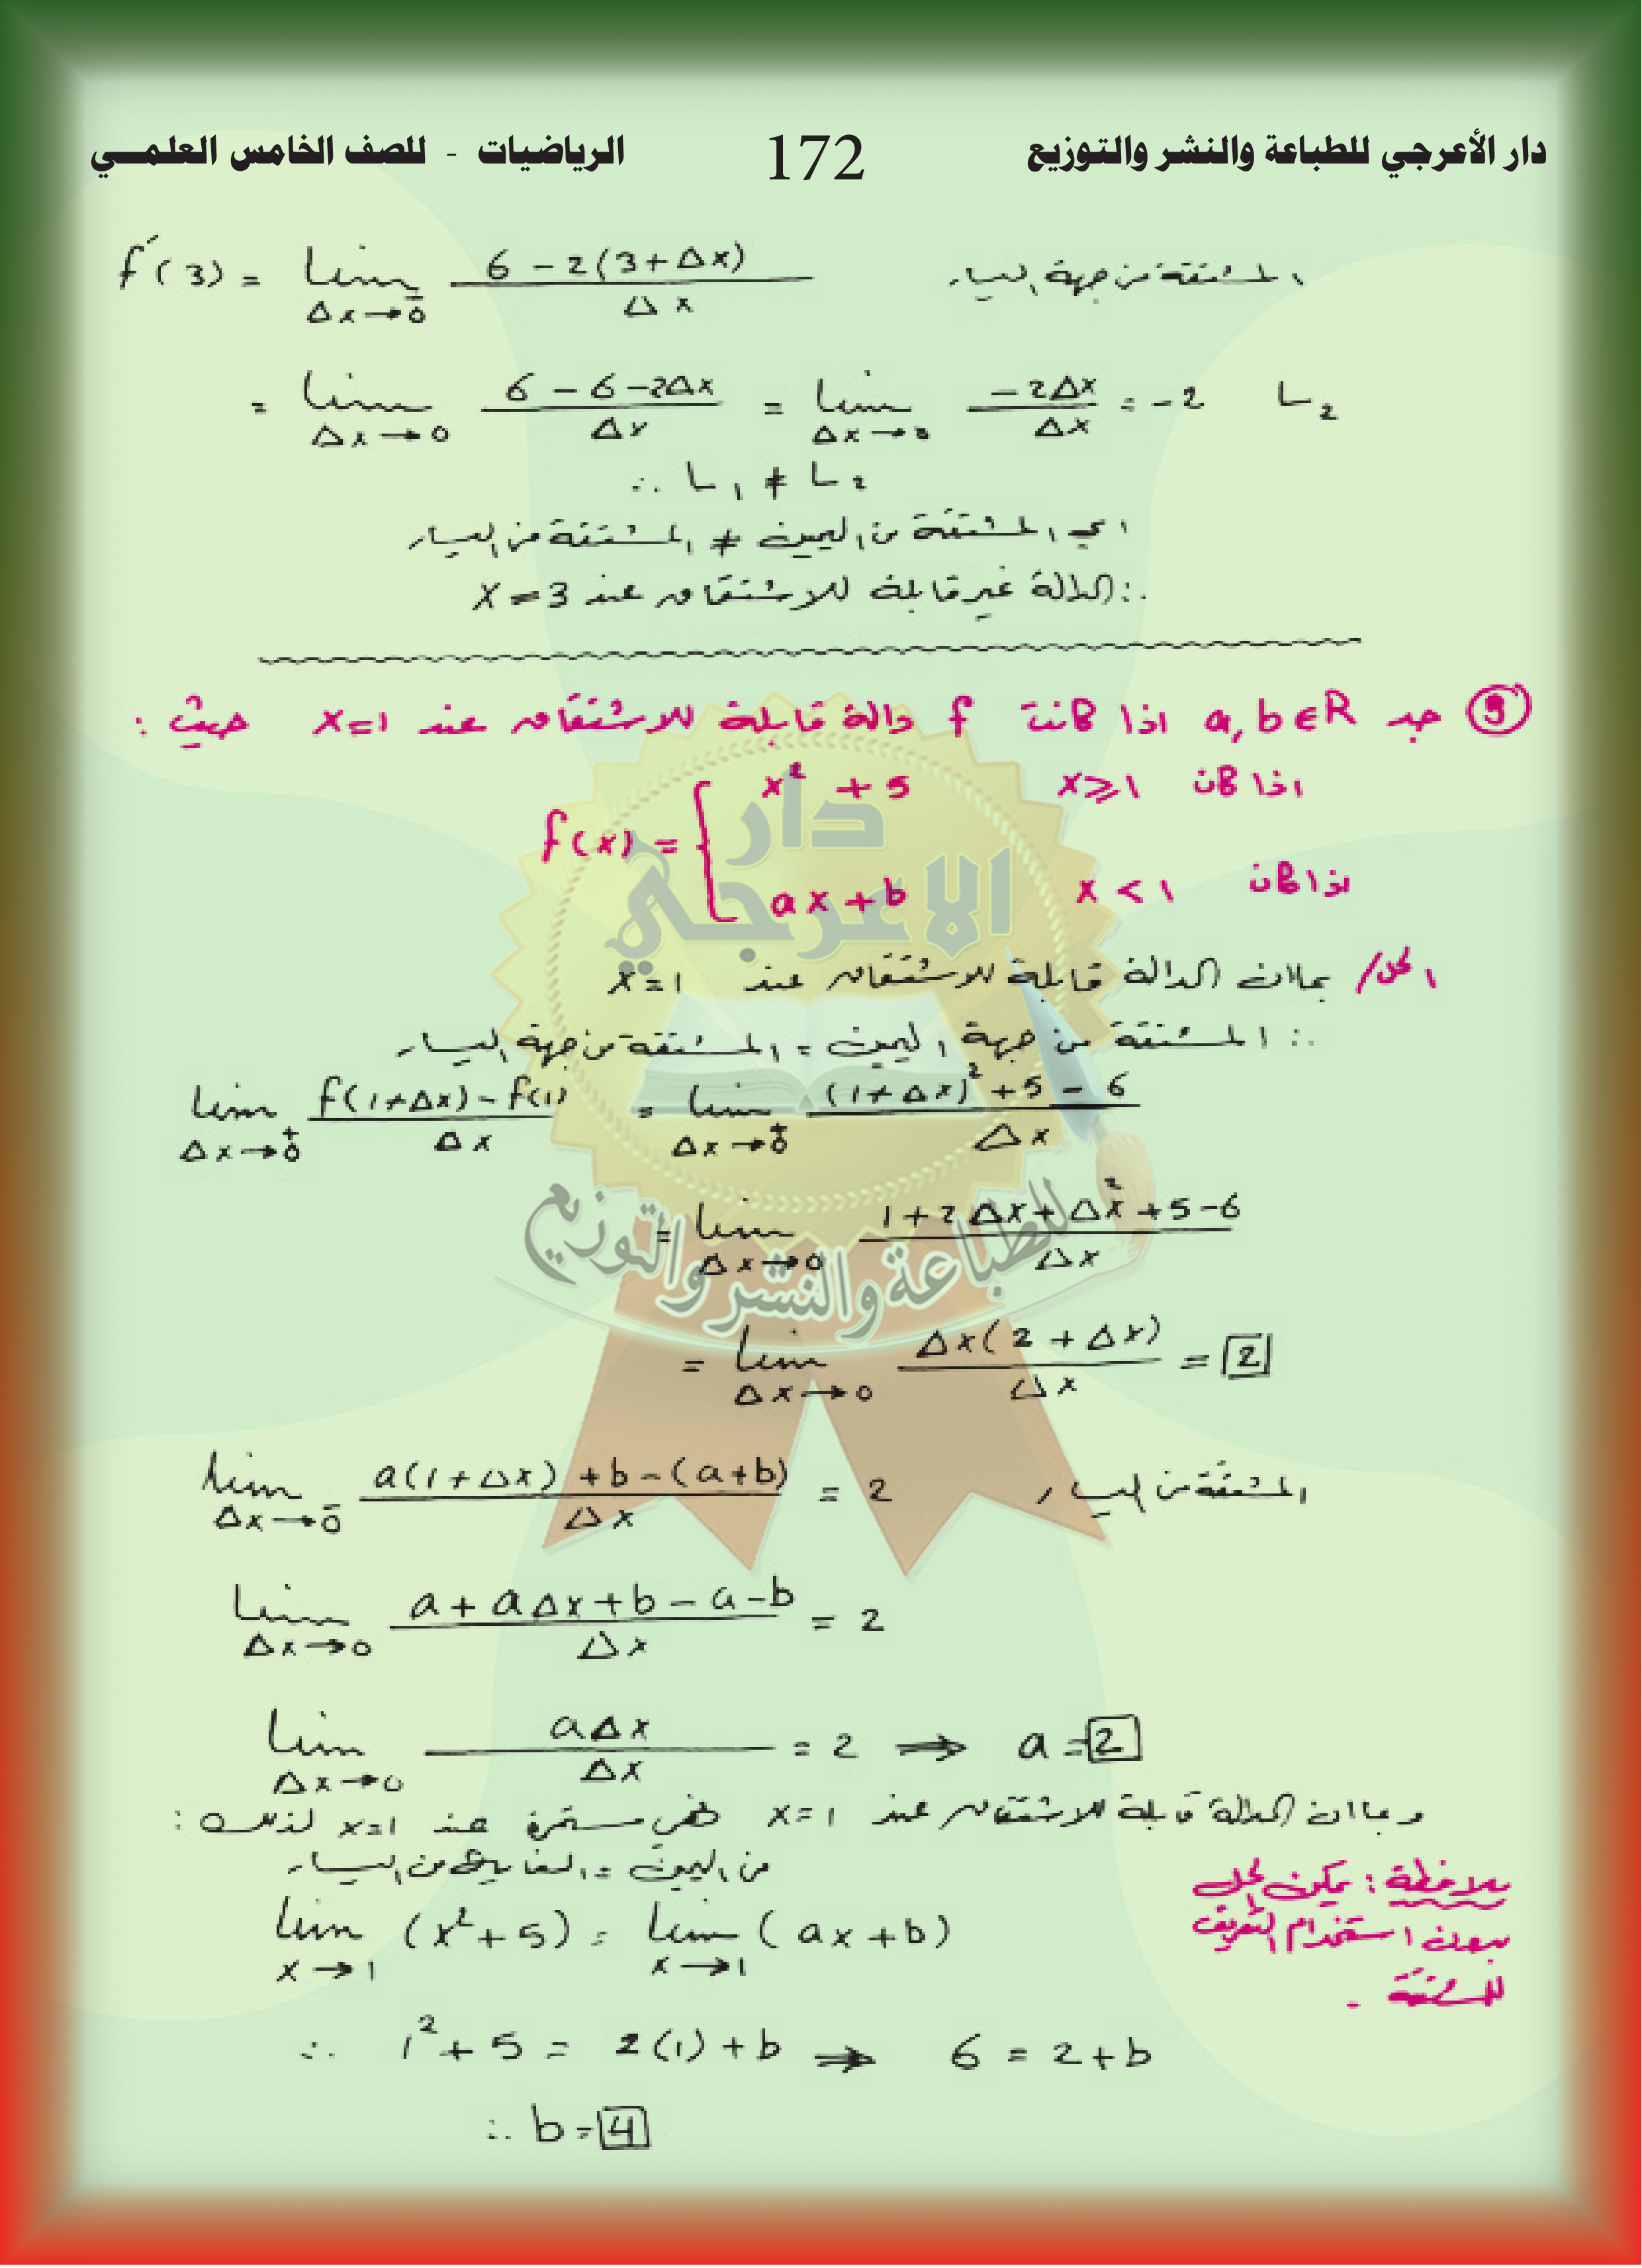 دار الأعرجي للطباعة والنشر والتوزيع 172 الرياضيات - للصف الخامس العلمي
f́(3) = lim Δx→0⁻ (6 - 2(3+Δx))/Δx المشتقة من جهة اليسار
= lim Δx→0 (6 - 6 - 2Δx)/Δx = lim Δx→0 (-2Δx)/Δx = -2 L₂
∴ L₁ ≠ L₂
اي المشتقة من اليمين ≠ المشتقة من اليسار
∴ الدالة غير قابلة للاشتقاق عند x = 3
⑨ جد a, b ∈ R اذا كانت f دالة قابلة للاشتقاق عند x=1 حيث :
f(x) = { x² + 5 x ≥ 1 اذا كان
ax + b x < 1 اذا كان
الحل/ بما ان الدالة قابلة للاشتقاق عند x=1
∴ المشتقة من جهة اليمين = المشتقة من جهة اليسار
lim Δx→0⁺ (f(1+Δx) - f(1))/Δx = lim Δx→0⁺ ((1+Δx)² + 5 - 6)/Δx
= lim Δx→0 (1+2Δx+Δx²+5-6)/Δx
= lim Δx→0 Δx(2+Δx)/Δx = 2
lim Δx→0⁻ (a(1+Δx)+b-(a+b))/Δx = 2 المشتقة من اليسار
lim Δx→0 (a+aΔx+b-a-b)/Δx = 2
lim Δx→0 aΔx/Δx = 2 ⇒ a = 2
وبما ان الدالة قابلة للاشتقاق عند x=1 فهي مستمرة عند x=1 لذلك :
من اليمين = الغاية من اليسار
lim x→1 (x²+5) = lim x→1 (ax+b)
∴ 1²+5 = 2(1)+b ⇒ 6 = 2+b
∴ b = 4
ملاحظة : يمكن الحل
بدون استخدام التعريف
للمشتقة .
دار
الاعرجي
للطباعة والنشر والتوزيع